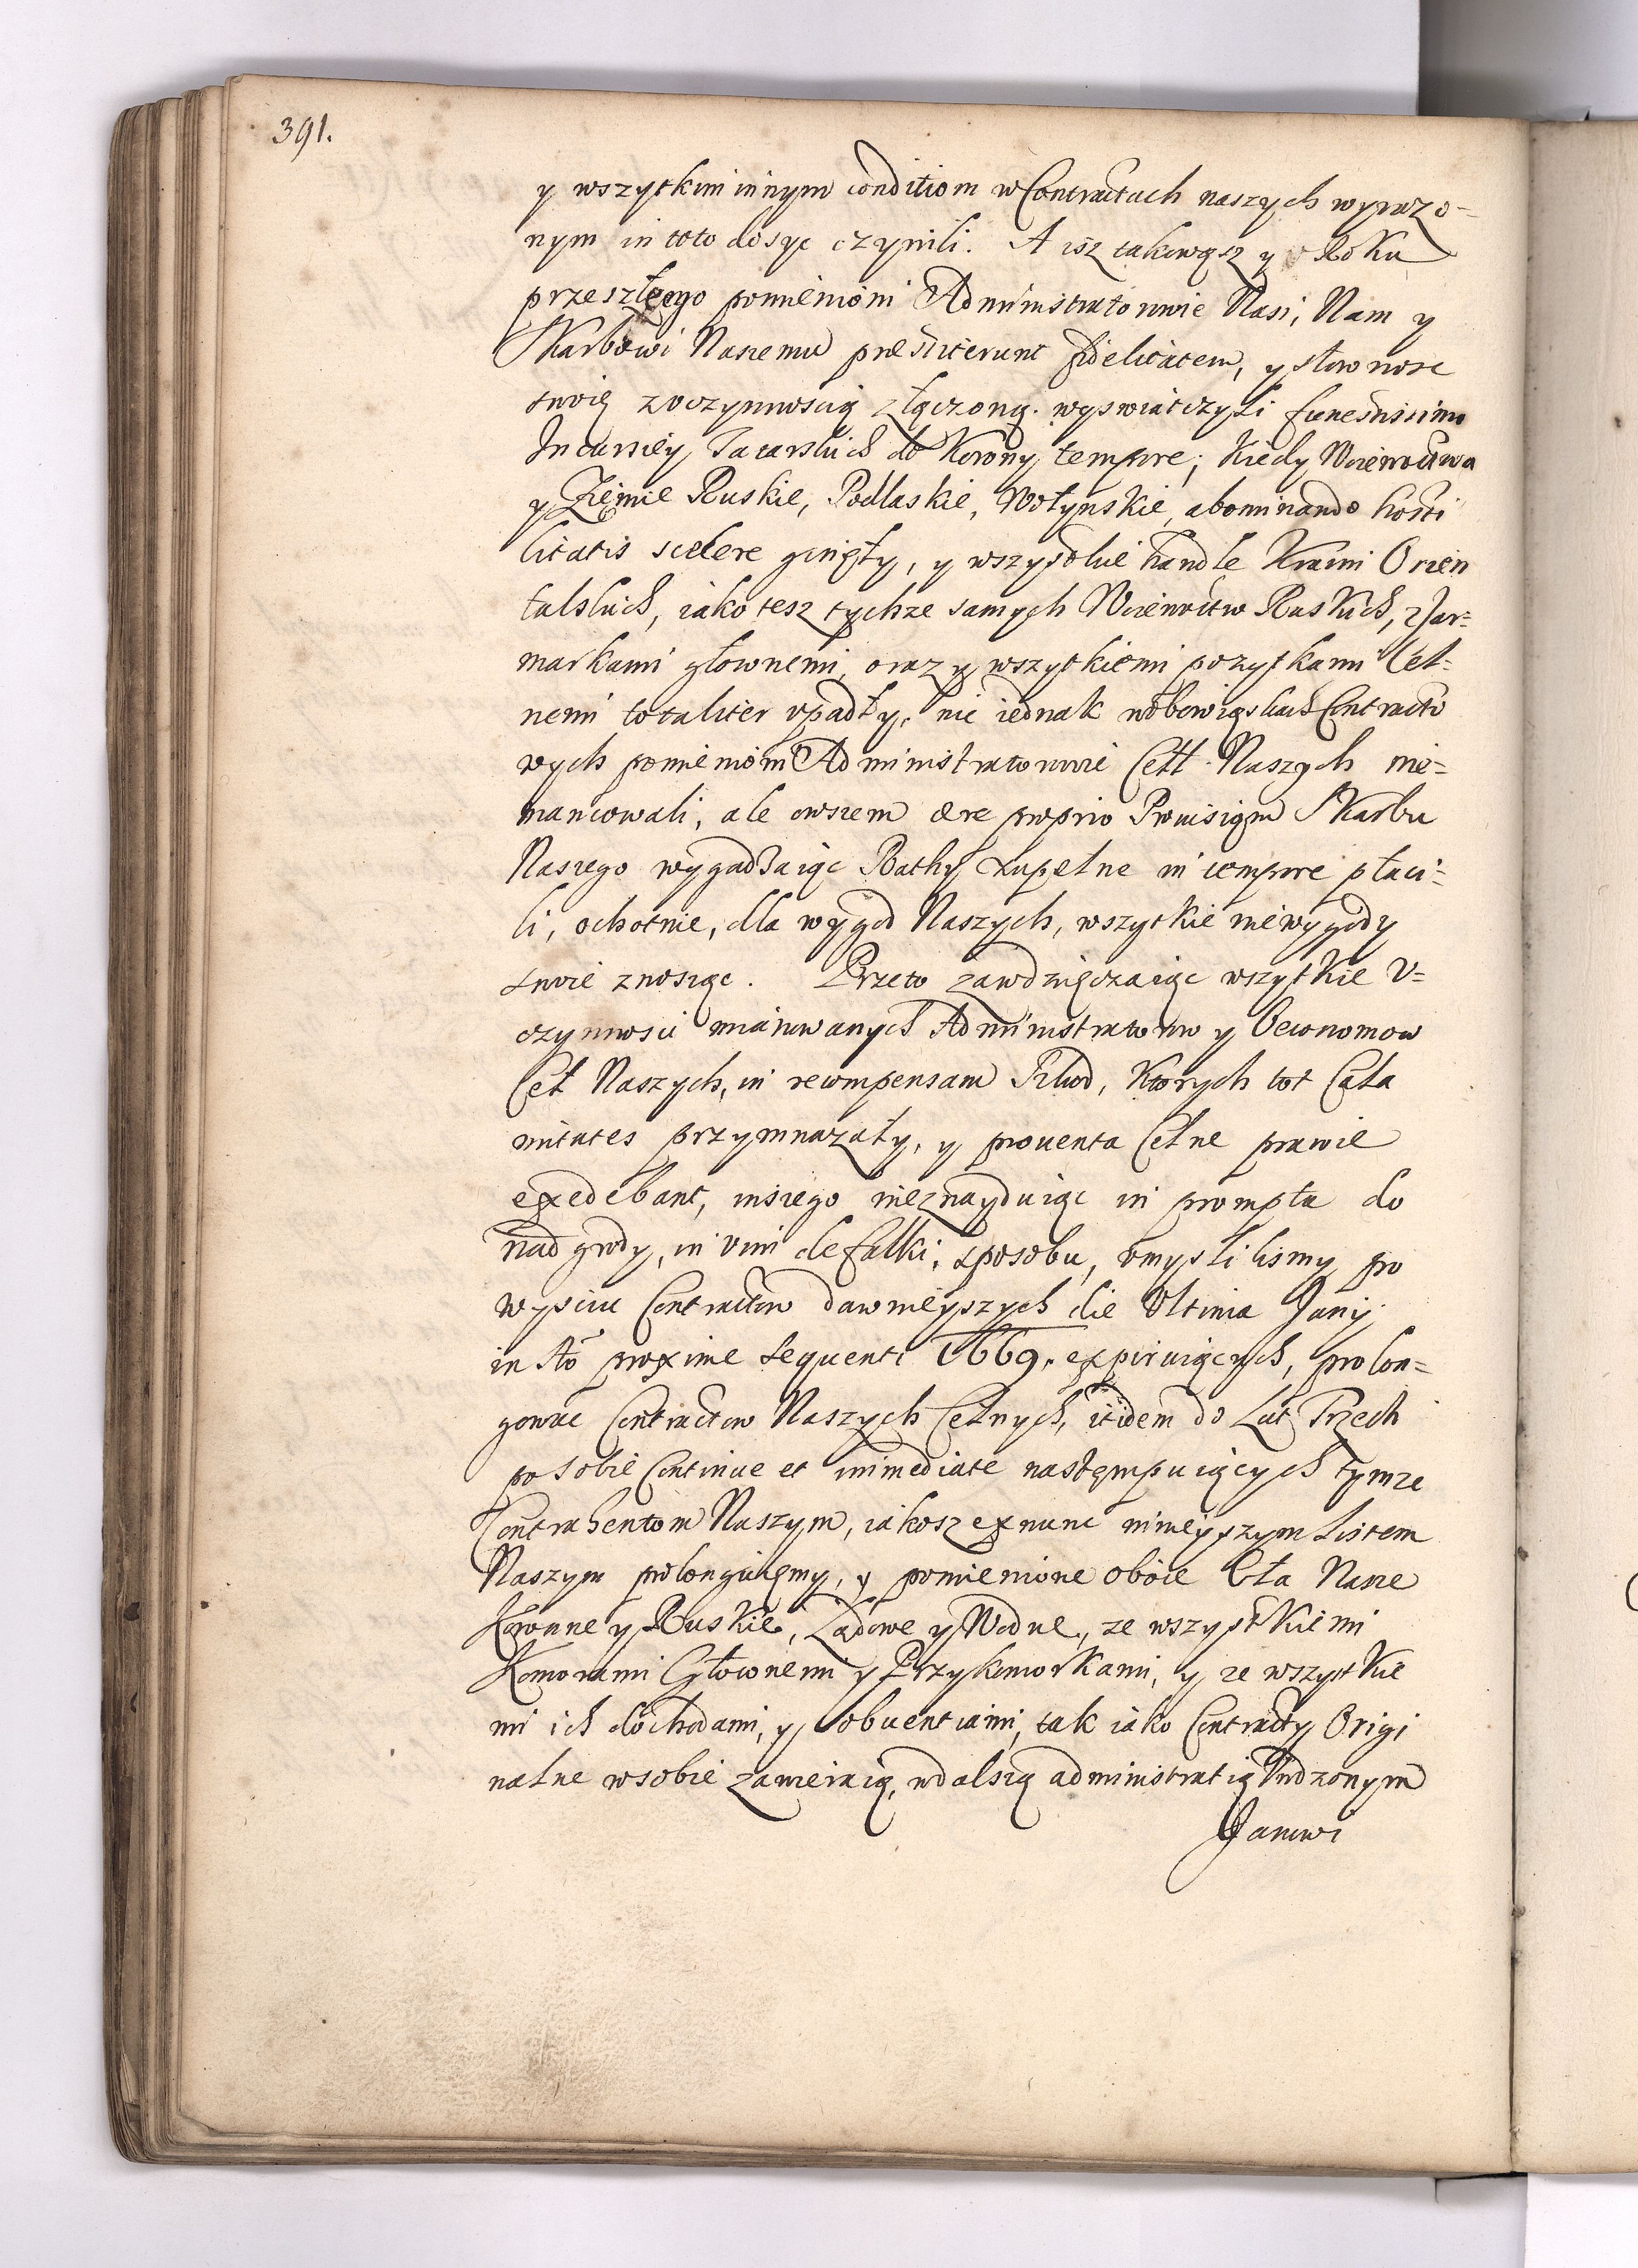 391.
y wszytkim innym conditiom w Contractach naszych wyrazo-
nym in toto dosyc czynili. A isz takowąsz y Roku
przeszłego pomienioni Administratorowie Nasi, Nam y
Skarbowi Naszemu prestiterunt fidelitatem, y słownosc
swoię zuczynnoscią złączoną. wyswiatczyli funestissimo
Incursiey Tatarskich do Korony tempore, kiedy Woiewodztwa
y Ziemie Ruskie, Podlaskie, Wołynskie, abominando hosti
litatis scelere ginęły, y wszysткie handle Kraini Orien
talskich, iako tesz tychze samych Woiewodztw Ruskich, z Jar-
markami głownemi, oraz y wszytkiemi pozytkami Cel-
nemi totaliter upadły, nic iednak w obowiązkach Contracto
wych pomienioni Administratorowie Cell Naszych nie-
mancowali, ale owszem ære proprio Prouisiom Skarbu
Naszego wygadzaiąc Rathy zupełne in tempore płaci-
li, ochotnie, dla wygod Naszych, wszytkie niewygody
swoie znosząc. Przeto zawdzięczaiąc wszytkie V-
czynnosci mianowanych Administratorow y Oeconomow
Ceł Naszych, in recompensam Szkod, Ktorych tot Cala
mitates przymnazały, y prouenta Celne prawie
exedebant, inszego nieznayduiąc in promptu do
nadgrody, in vim defalki, sposobu, umyslilismy po
wysciu Contractow dawnieyszych die Ultima Junij
in Ao proxime sequenti 1669. expiruiących, prolon-
gowac Contractow Naszych Celnych, itidem do Lat Trzech
po sobie Continue et immediate nastęmpuiących tymze
Contrahentom Naszym, iakosz exnunc ninieyszym Listem
Naszym prolonguiemy, y pomienione oboie Cła Nasze
Koronne y Ruskie, Lądowe y Wodne, ze wszystkiemi
Komorami Głownemi y Przykomorkami, y ze wszytkie
mi ich dochodami, y obuentiami, tak iako Contracty Origi
nalne wsobie zawieraią, wdalszą administratią Urodzonym
Janowi